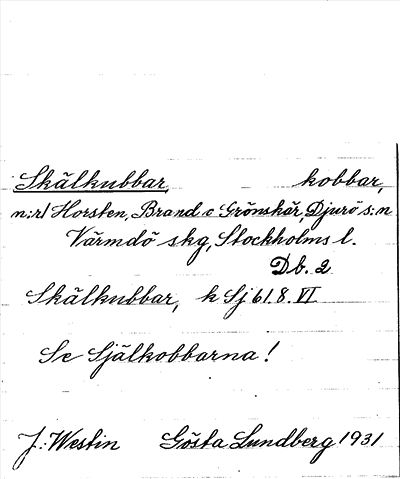 Skälkubbar, kobbar,
n:r1 Horsten, Brand o Grönskär, Djurö s:n
Värmdö skg, Stockholms l.
Db. 2
Skälkubbar, k Sj 61. 8. VI
Se Själkobbarna!
J: Westin Gösta Lundberg 1931